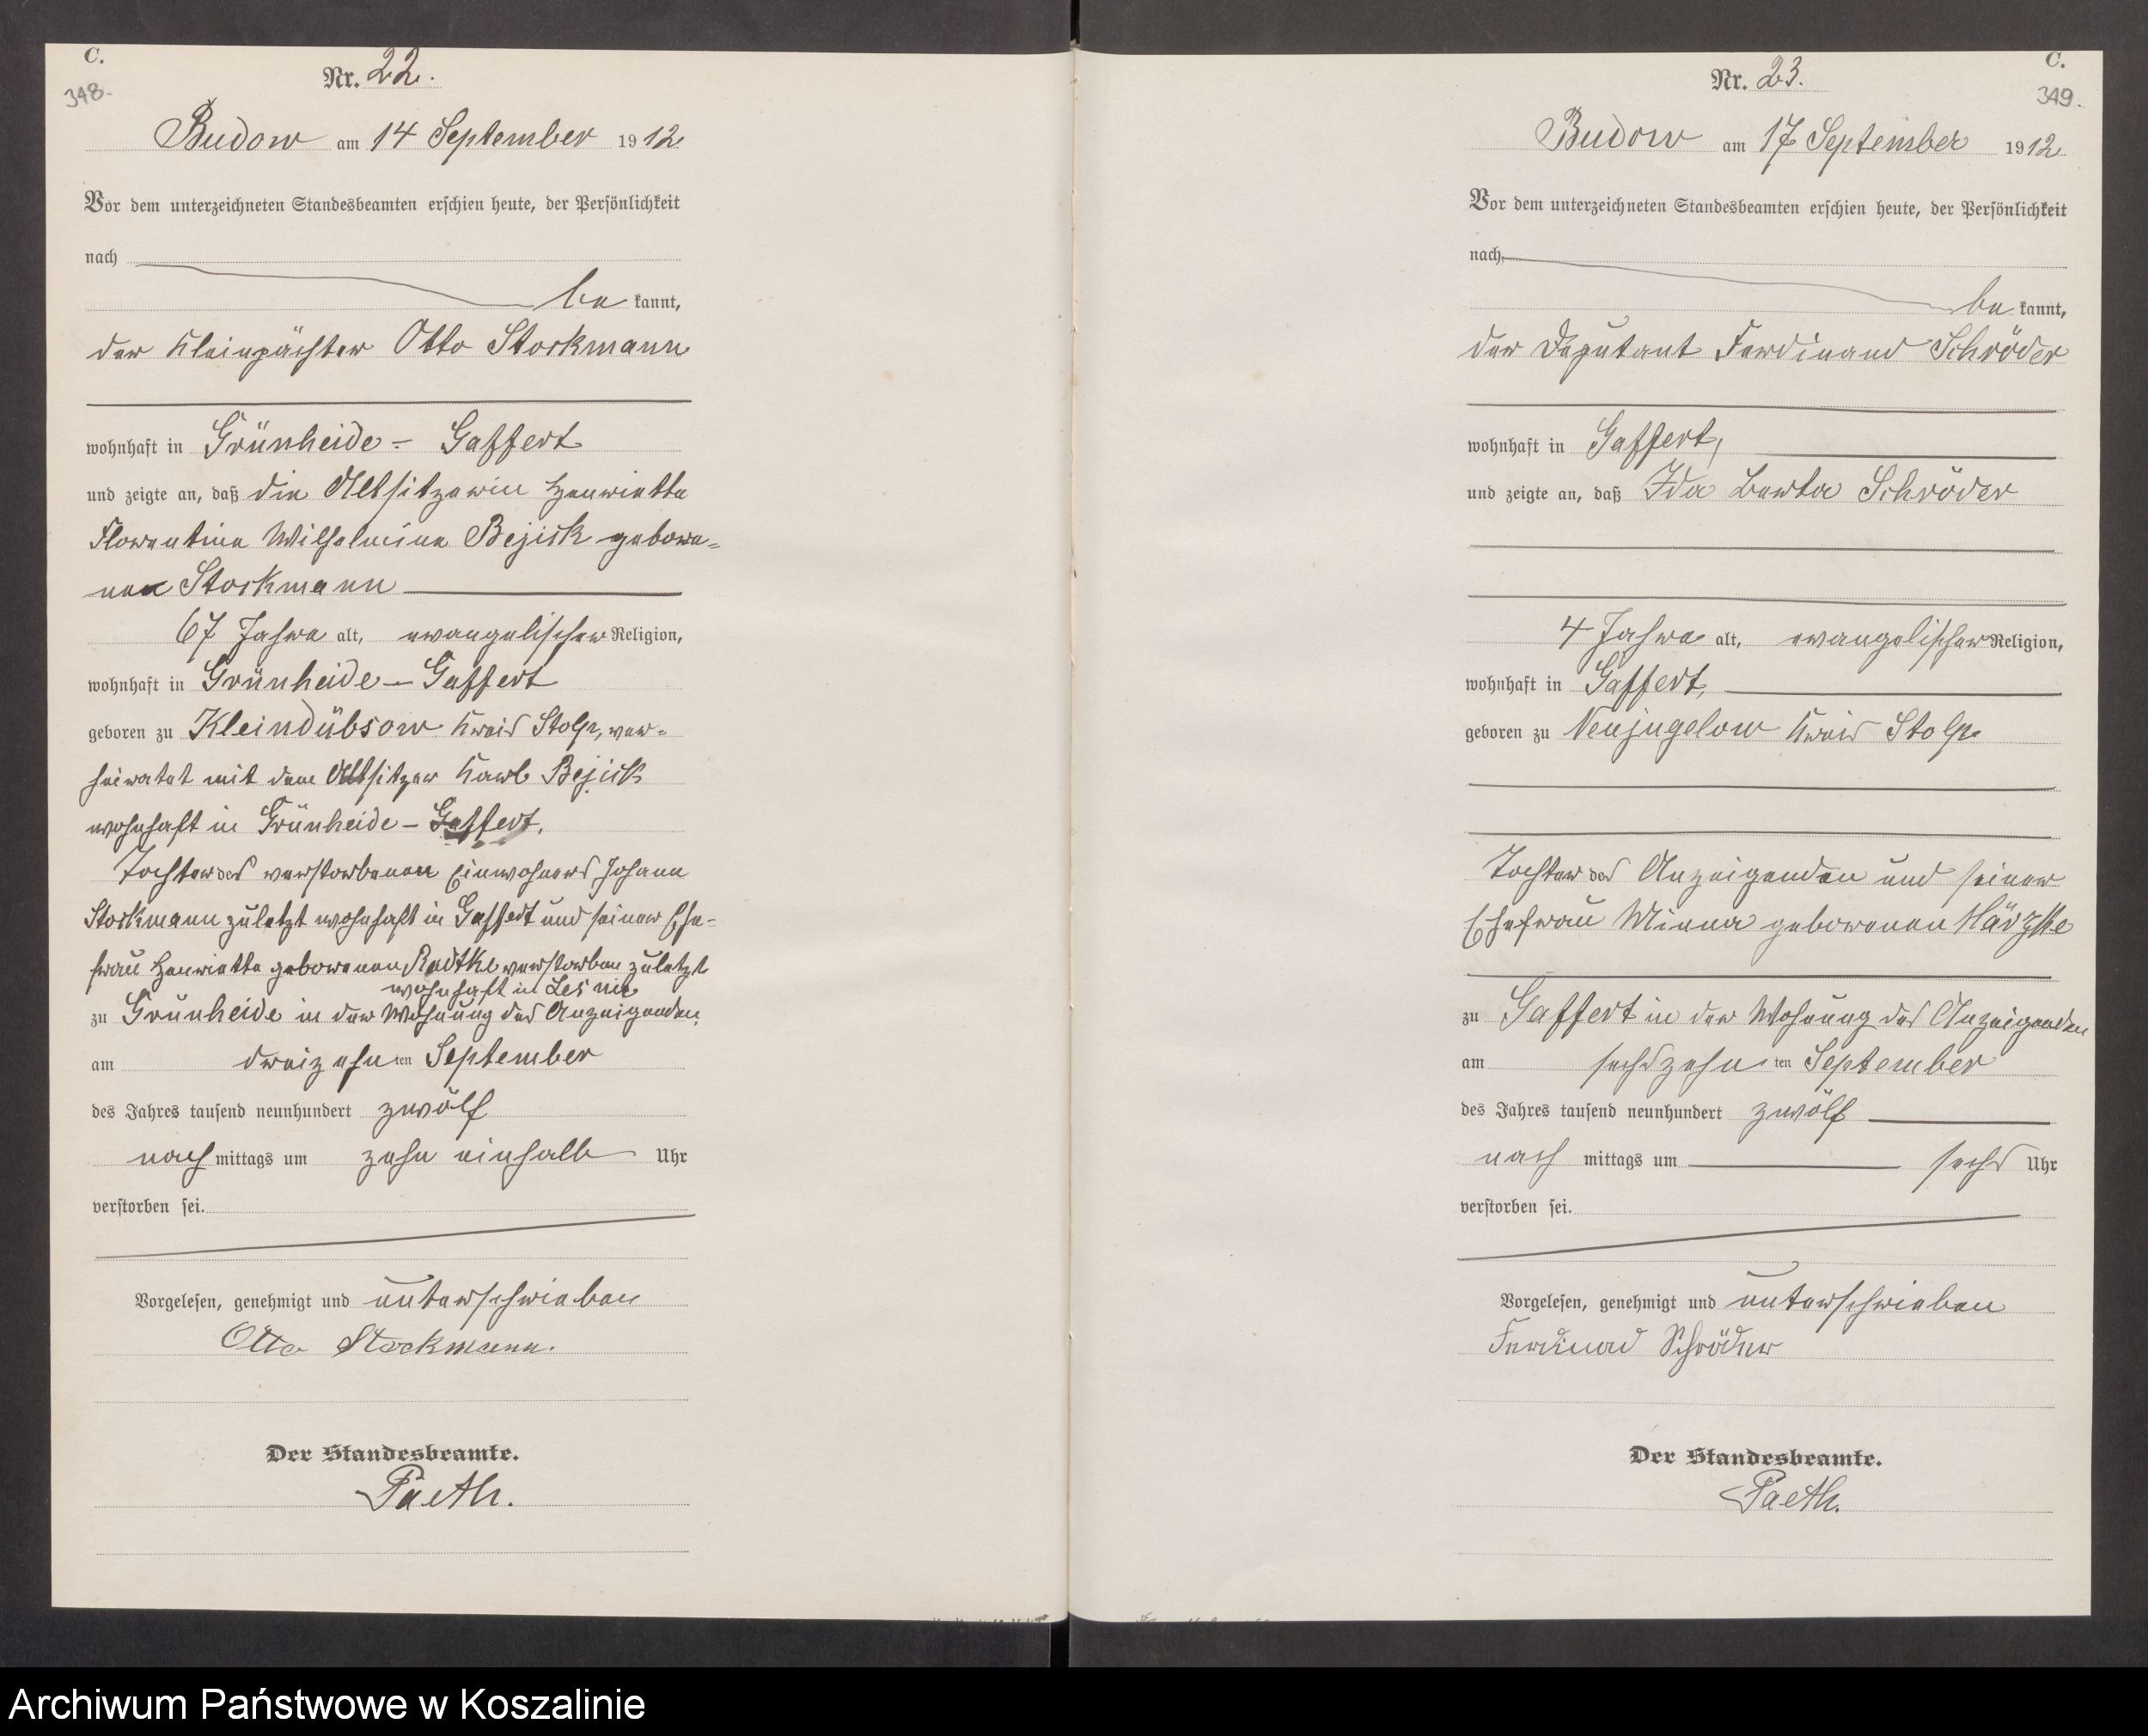 C.
348.
Nr. 22.
Budow am 14 September 1912
Vor dem unterzeichneten Standesbeamten erschien heute, der Persönlichkeit
nach
be kannt,
der Kleinpächter Otto Stockmann
wohnhaft in Grünheide - Gaffert
und zeigte an, daß die Altsitzerin Henriette
Florentine Wilhelmine Bejick gebore=
nen Stockmann
67 Jahre alt, evangelischer Religion,
wohnhaft in Grünheide - Gaffert
geboren zu Kleindübsow Kreis Stolp, ver=
heiratet mit dem Altsitzer Karl Bejick
wohnhaft in Grünheide - Gaffert.
Tochter des verstorbenen Einwohners Johann
Stockmann zuletzt wohnhaft in Gaffert und seiner Ehe-
frau Henriette geborenen Radtke verstorben zuletzt
wohnhaft in
zu Grünheide in der Wohnung des Anzeigenden
am dreizehn ten September
des Jahres tausend neunhundert zwölf
nach mittags um zehn einhalb Uhr
verstorben sei.
Vorgelesen, genehmigt und unterschrieben
Otto Stockmann.
Der Standesbeamte.
Paeth.
C.
349.
Nr. 23.
Budow am 17 September 1912
Vor dem unterzeichneten Standesbeamten erschien heute, der Persönlichkeit
nach
be kannt,
der Deputant Ferdinand Schröder
wohnhaft in Gaffert,
und zeigte an, daß Ida Berta Schröder
4 Jahre alt, evangelischer Religion,
wohnhaft in Gaffert,
geboren zu Neujugelow Kreis Stolp
Tochter des Anzeigenden und seiner
Ehefrau Minna geborenen
zu Gaffert in der Wohnung des Anzeigenden
am sechszehn ten September
des Jahres tausend neunhundert zwölf
nach mittags um sechs Uhr
verstorben sei.
Vorgelesen, genehmigt und unterschrieben
Ferdinad Schröder
Der Standesbeamte.
Paeth.
Archiwum Państwowe w Koszalinie